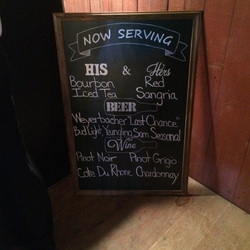 NOW SERVING
HIS & Hers
Bourbon Red
Iced Tea Sangria
BEER
Weyerbacher "Last Chance"
Bud Light, Yuengling, Sam Seasonal
Wine
Pinot Noir Pinot Grigio
Cote Du Rhone Chardonnay